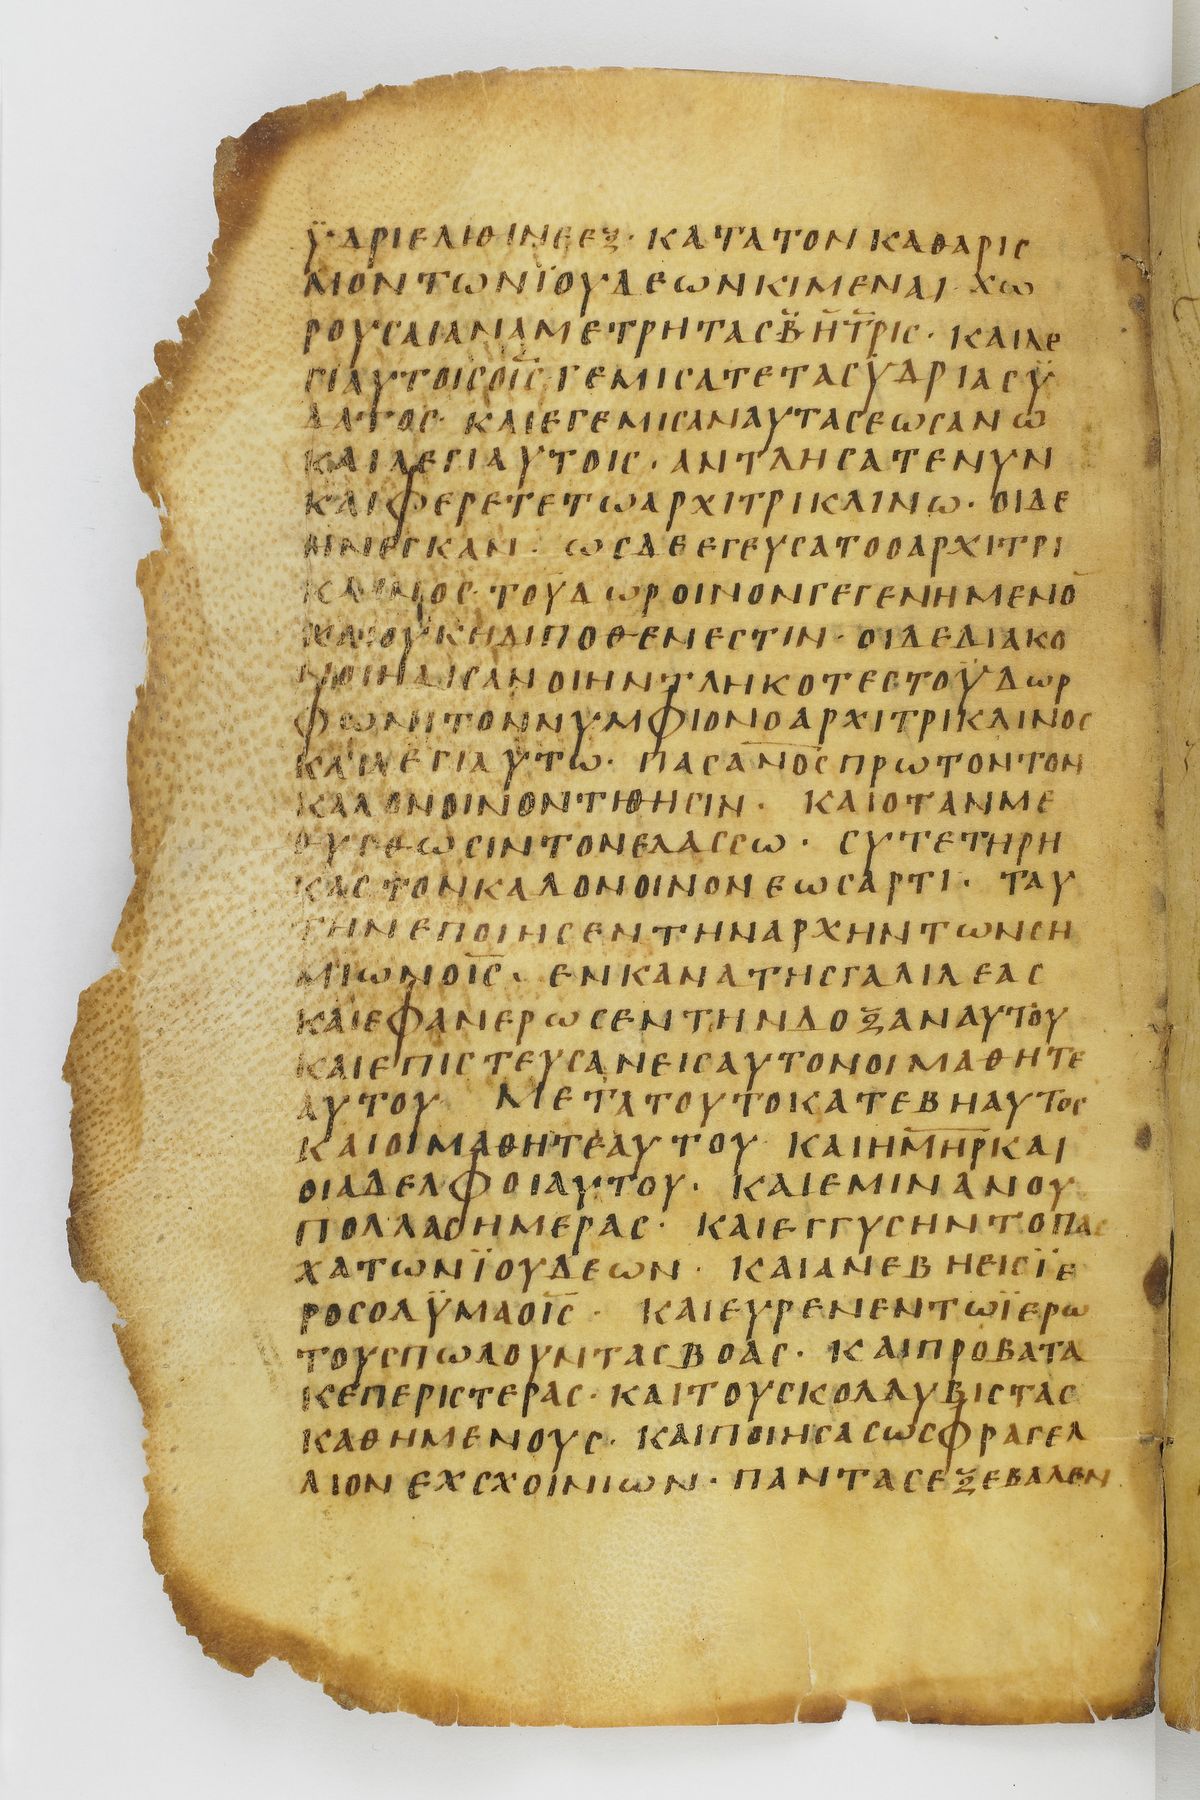 ΫΔΡΙΕΛΙΘΙΝΕΕΞ· ΚΑΤΑΤΟΝΚΑΘΑΡΙϹ
ΜΟΝΤΩΝΪΟΥΔΕΩΝΚΙΜΕΝΑΙ· ΧΩ
ΡΟΥϹΑΙΑΝΑΜΕΤΡΗΤΑϹΒ̅Η̅Τ̅ΡΙϹ· ΚΑΙΛΕ
ΓΙΑΥΤΟΙϹΟΙ̅Ϲ̅ΓΕΜΙϹΑΤΕΤΑϹΫΔΡΙΑϹΫ
ΔΑΤΟϹ· ΚΑΙΕΓΕΜΙϹΑΝΑΥΤΑϹΕΩϹΑΝΩ
ΚΑΙΛΕΓΙΑΥΤΟΙϹ· ΑΝΤΛΗϹΑΤΕΝΥΝ
ΚΑΙΦΕΡΕΤΕΤΩΑΡΧΙΤΡΙΚΛΙΝΩ· ΟΙΔΕ
ΗΝΕΓΚΑΝ· ΩϹΔΕΕΓΕΥϹΑΤΟΟΑΡΧΙΤΡΙ
ΚΛΙΝΟϹ· ΤΟΫΔΩΡΟΙΝΟΝΓΕΓΕΝΗΜΕΝΟ̅
ΚΑΙΟΥΚΗΔΙΠΟΘΕΝΕϹΤΙΝ· ΟΙΔΕΔΙΑΚΟ
ΝΟΙΗΔΙϹΑΝΟΙΗΝΤΛΗΚΟΤΕϹΤΟΫΔΩΡ
ΦΩΝΙΤΟΝΝΥΜΦΙΟΝΟΑΡΧΙΤΡΙΚΛΙΝΟϹ
ΚΑΙΛΕΓΙΑΥΤΩ· ΠΑϹΑ̅Ν̅Ο̅Ϲ̅ΠΡΩΤΟΝΤΟΝ
ΚΑΛΟΝΟΙΝΟΝΤΙΘΗϹΙΝ· ΚΑΙΟΤΑΝΜΕ
ΘΥϹΘΩϹΙΝΤΟΝΕΛΑϹϹΩ· ϹΥΤΕΤΗΡΗ
ΚΑϹΤΟΝΚΑΛΟΝΟΙΝΟΝΕΩϹΑΡΤΙ· ΤΑΥ
ΤΗΝΕΠΟΙΗϹΕΝΤΗΝΑΡΧΗΝΤΩΝϹΗ
ΜΙΩΝΟΙ̅Ϲ̅· ΕΝΚΑΝΑΤΗϹΓΑΛΙΛΕΑϹ
ΚΑΙΕΦΑΝΕΡΩϹΕΝΤΗΝΔΟΞΑΝΑΥΤΟΥ
ΚΑΙΕΠΙϹΤΕΥϹΑΝΕΙϹΑΥΤΟΝΟΙΜΑΘΗΤΕ
ΑΥΤΟΥ· ΜΕΤΑΤΟΥΤΟΚΑΤΕΒΗΑΥΤΟϹ
ΚΑΙΟΙΜΑΘΗΤΕΑΥΤΟΥ ΚΑΙΗΜ̅Η̅Ρ̅ΚΑΙ
ΟΙΑΔΕΛΦΟΙΑΥΤΟΥ· ΚΑΙΕΜΙΝΑΝΟΥ
ΠΟΛΛΑϹΗΜΕΡΑϹ· ΚΑΙΕΓΓΥϹΗΝΤΟΠΑϹ
ΧΑΤΩΝΪΟΥΔΕΩΝ· ΚΑΙΑΝΕΒΗΕΙϹΪΕ
ΡΟϹΟΛΫΜΑΟΙ̅Ϲ̅· ΚΑΙΕΥΡΕΝΕΝΤΩΪΕΡΩ
ΤΟΥϹΠΩΛΟΥΝΤΑϹΒΟΑϹ· ΚΑΙΠΡΟΒΑΤΑ
ΚΕΠΕΡΙϹΤΕΡΑϹ· ΚΑΙΤΟΥϹΚΟΛΛΥΒΙϹΤΑϹ
ΚΑΘΗΜΕΝΟΥϹ· ΚΑΙΠΟΙΗϹΑϹΩϹΦΡΑΓΕΛ
ΛΙΟΝΕΧϹΧΟΙΝΙΩΝ· ΠΑΝΤΑϹΕΞΕΒΑΛΕΝ